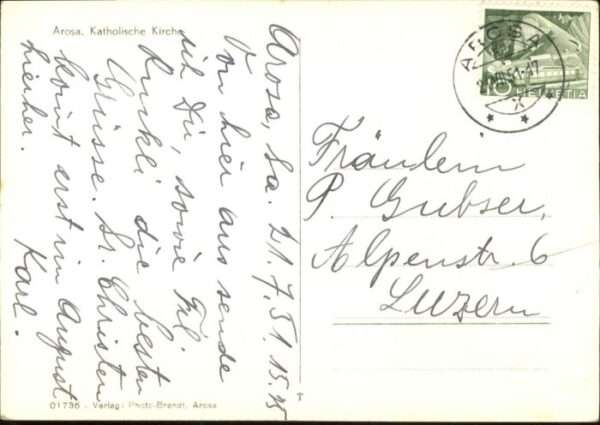 Arosa, Katholische Kirche
Arosa, Sa. 21.7.51. 15.15
Von hier aus sende
ich Dir, sowie Frl.
die besten
Grüsse. Sr. Christen
kommt erst im August
hierher. Karl.
AROSA
HELVETIA
Fräulein
P. Gubser,
Alpenstr. 6
Luzern
01736 - Verlag: Photo-Brandt, Arosa